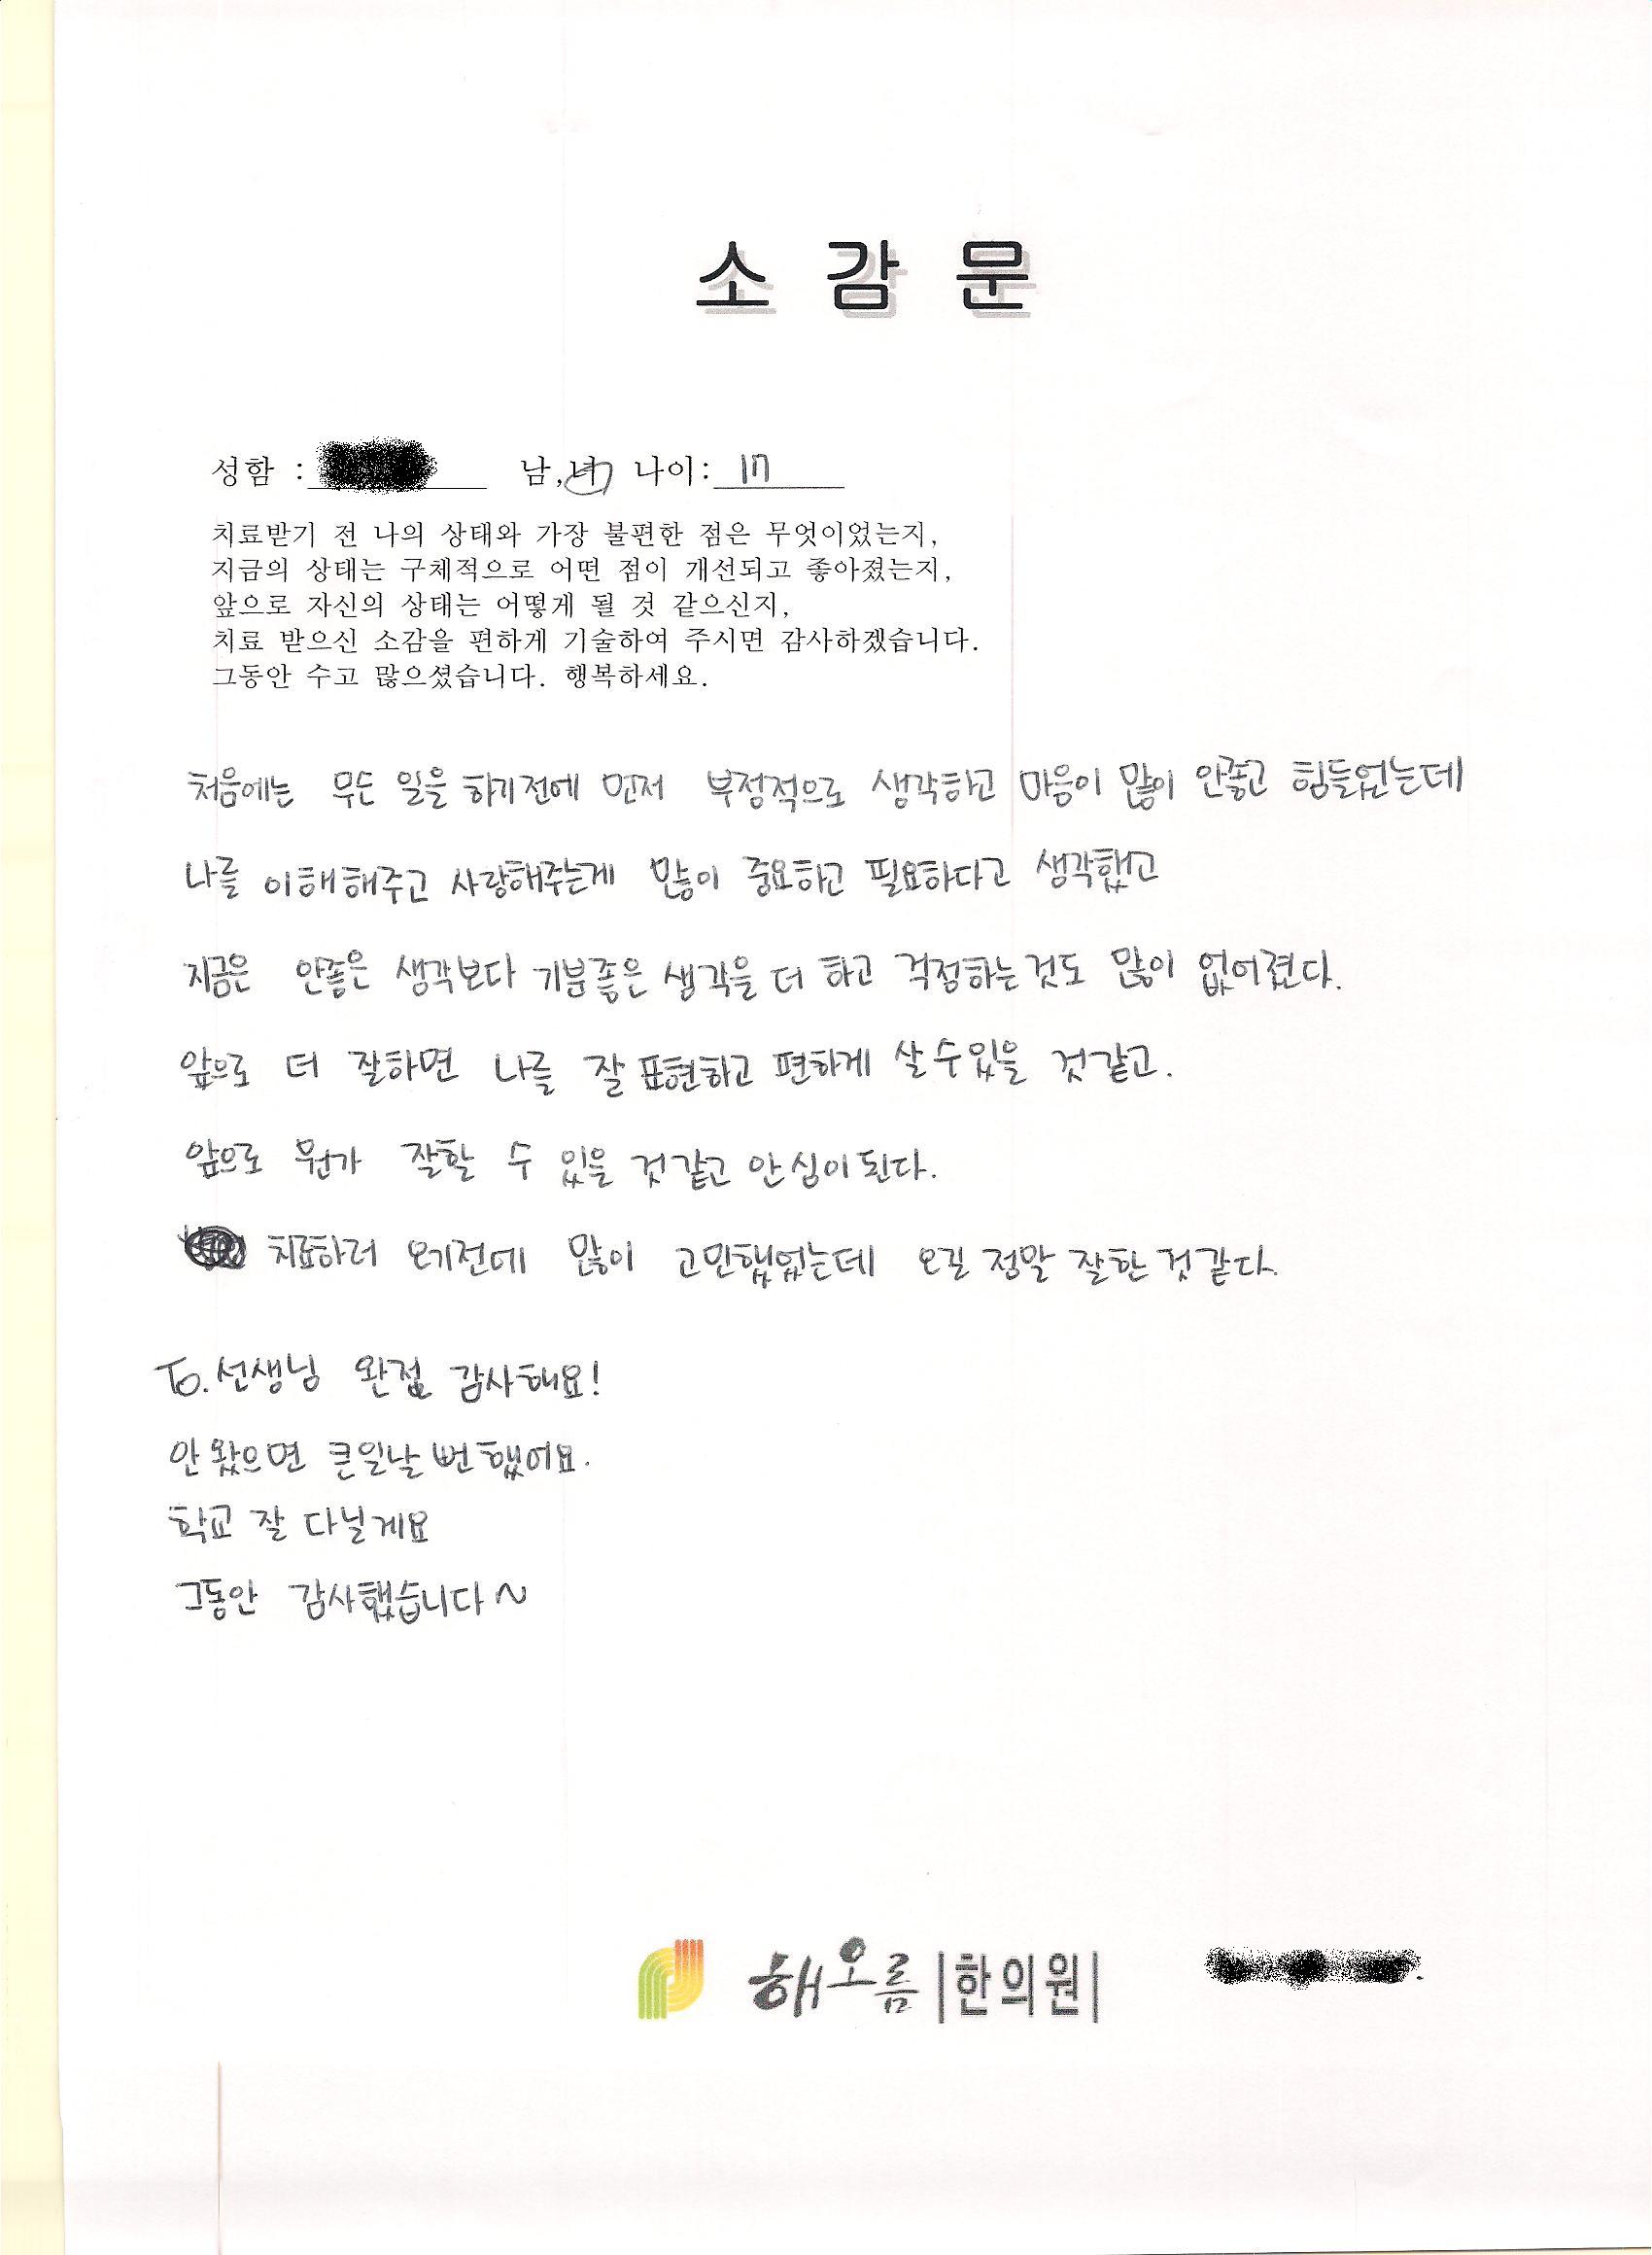 소 감 문
성함 : 남,녀 나이: 17
치료받기 전 나의 상태와 가장 불편한 점은 무엇이었는지,
지금의 상태는 구체적으로 어떤 점이 개선되고 좋아졌는지,
앞으로 자신의 상태는 어떻게 될 것 같으신지,
치료 받으신 소감을 편하게 기술하여 주시면 감사하겠습니다.
그동안 수고 많으셨습니다. 행복하세요.
처음에는 무슨 일을 하기전에 먼저 부정적으로 생각하고 마음이 많이 안좋고 힘들었는데
나를 이해해주고 사랑해주는게 많이 중요하고 필요하다고 생각했고
지금은 안좋은 생각보다 기분좋은 생각을 더 하고 걱정하는것도 많이 없어졌다.
앞으로 더 잘하면 나를 잘 표현하고 편하게 살수있을 것같고.
앞으로 뭔가 잘할 수 있을 것같고 안심이된다.
치료하러 오기전에 많이 고민했었는데 오길 정말 잘한것같다.
To. 선생님 완전 감사해요!
안왔으면 큰일날뻔했어요.
학교 잘 다닐게요
그동안 감사했습니다~
해오름|한의원|